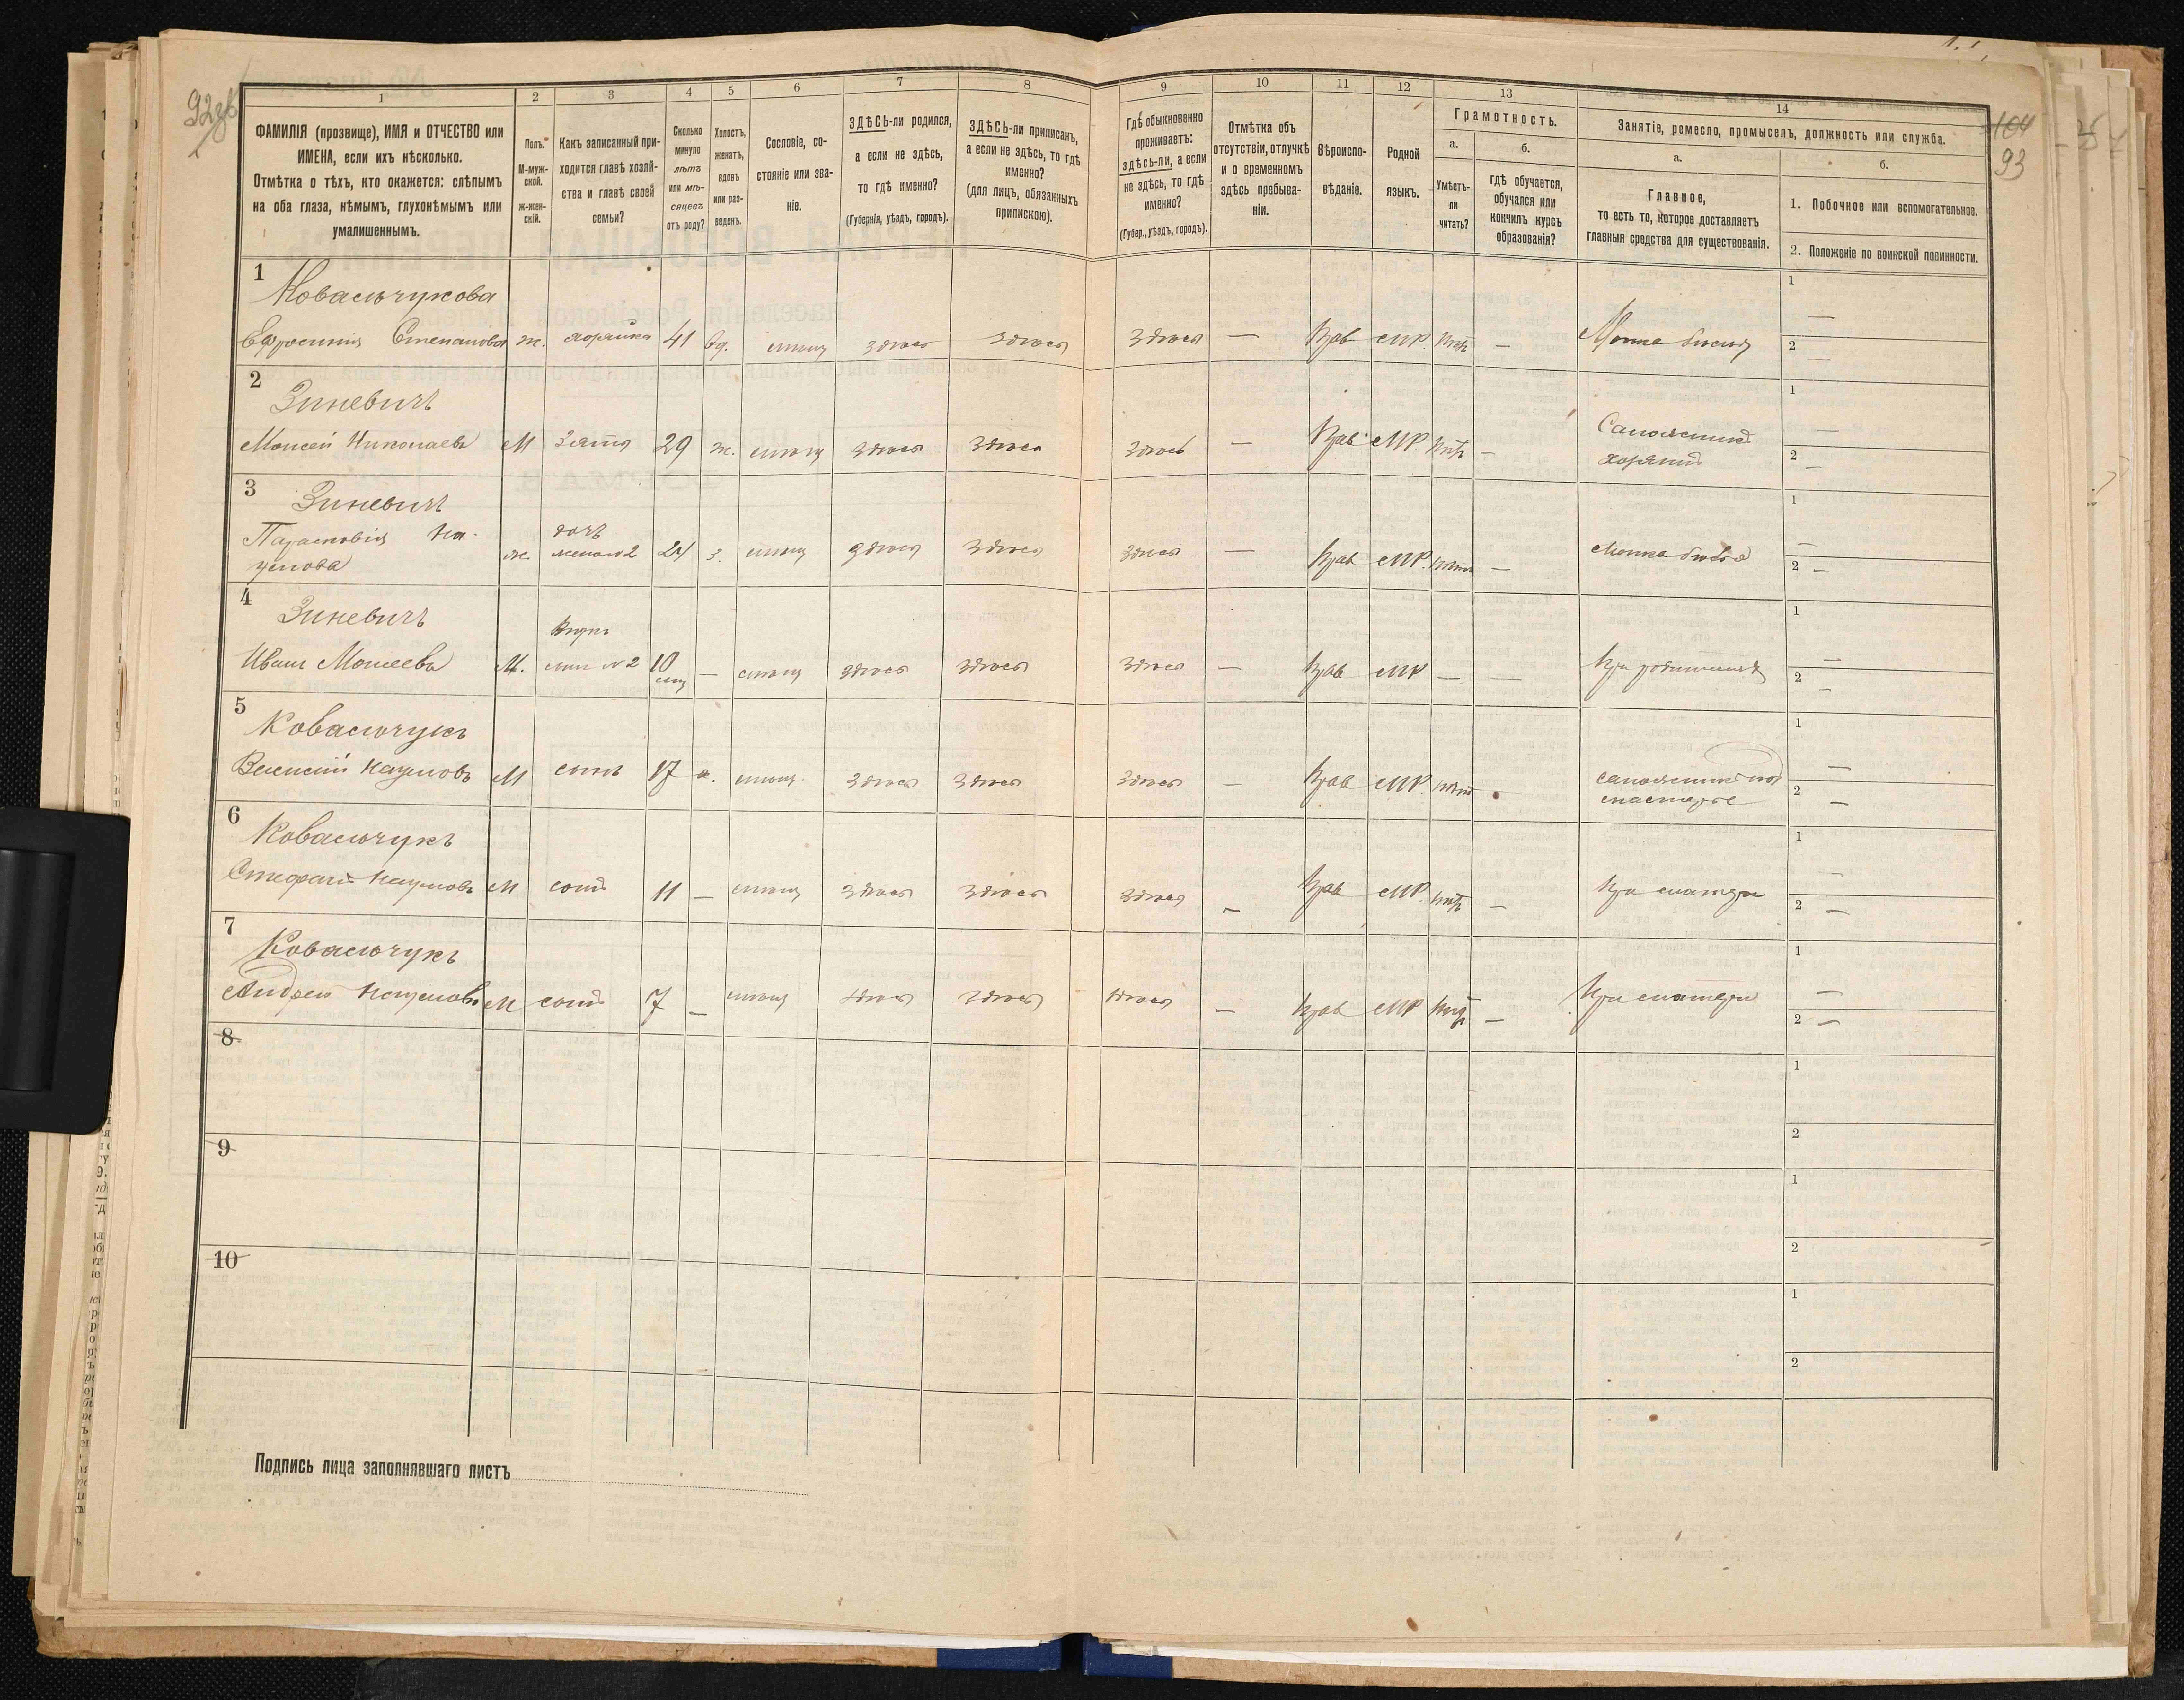 92об
104
93
1
2
3
4
5
6
7
8
9
10
11
12
13
14
ФАМИЛІЯ (прозвище), ИМЯ и ОТЧЕСТВО или
ИМЕНА, если ихъ нѣсколько.
Отмѣтка о тѣхъ, кто окажется: слѣпымъ
на оба глаза, нѣмымъ, глухонѣмымъ или
умалишеннымъ.
Полъ.
М-муж-
ской.
ж-жен-
скій.
Какъ записанный при-
ходится главѣ хозяй-
ства и главѣ своей
семьи?
Сколько
минуло
лѣтъ
или мѣ-
сяцевъ
отъ роду?
Холостъ,
женатъ,
вдовъ
или раз-
веденъ.
Сословіе, со-
стояніе или зва-
ніе.
ЗДѢСЬ-ли родился,
а если не здѣсь,
то гдѣ именно?
(Губернія, уѣздъ, городъ).
ЗДѢСЬ-ли приписанъ,
а если не здѣсь, то гдѣ
именно?
(для лицъ, обязанныхъ
припискою).
Гдѣ обыкновенно
проживаетъ:
здѣсь-ли, а если
не здѣсь, то гдѣ
именно?
(Губер., уѣздъ, городъ).
Отмѣтка объ
отсутствіи, отлучкѣ
и о временномъ
здѣсь пребыва-
ніи.
Вѣроиспо-
вѣданіе.
Родной
языкъ.
Грамотность.
а.
Умѣетъ-
ли
читать?
б.
гдѣ обучается,
обучался или
кончилъ курсъ
образованія?
Занятіе, ремесло, промыселъ, должность или служба.
а.
Главное,
то есть то, которое доставляетъ
главныя средства для существованія.
б.
1. Побочное или вспомогательное.
2. Положеніе по воинской повинности.
1
Ковальчукова
1
—
Ефросинія Степанова ж. хозяйка 41 вд. здѣсь здѣсь здѣсь — Прав МР. нѣтъ —
2 —
2
Зиневичъ
1
—
Моисей Николаевъ М зять 29 ж. здѣсь здѣсь здѣсь — Прав МР. нѣтъ — Сапожникъ
хозяинъ
2 —
3
Зиневичъ
1
Парасковія На-
умова ж. дочь
жена №2 24 з. здѣсь здѣсь здѣсь — Прав МР. нѣтъ —
—
2 —
4
Зиневичъ
1
Иванъ Моисеевъ М. внукъ
сынъ №2 10
мѣс — здѣсь здѣсь здѣсь — Прав МР — — При родителяхъ
—
2 —
5
Ковальчукъ
1
Василій Наумовъ М сынъ 17 х. здѣсь здѣсь здѣсь — Прав МР. нѣтъ сапожникъ под
мастерье
—
2 —
6
Ковальчукъ
1
Стефанъ Наумовъ М сынъ 11 — здѣсь здѣсь здѣсь — Прав МР. нѣтъ — При матери
—
2 —
7
Ковальчукъ
1
Андрей Наумовъ М сынъ 7 — здѣсь здѣсь здѣсь — Прав МР нѣтъ — При матери
—
2 —
8
1
2
9
1
2
10
1
2
Подпись лица заполнявшаго листъ